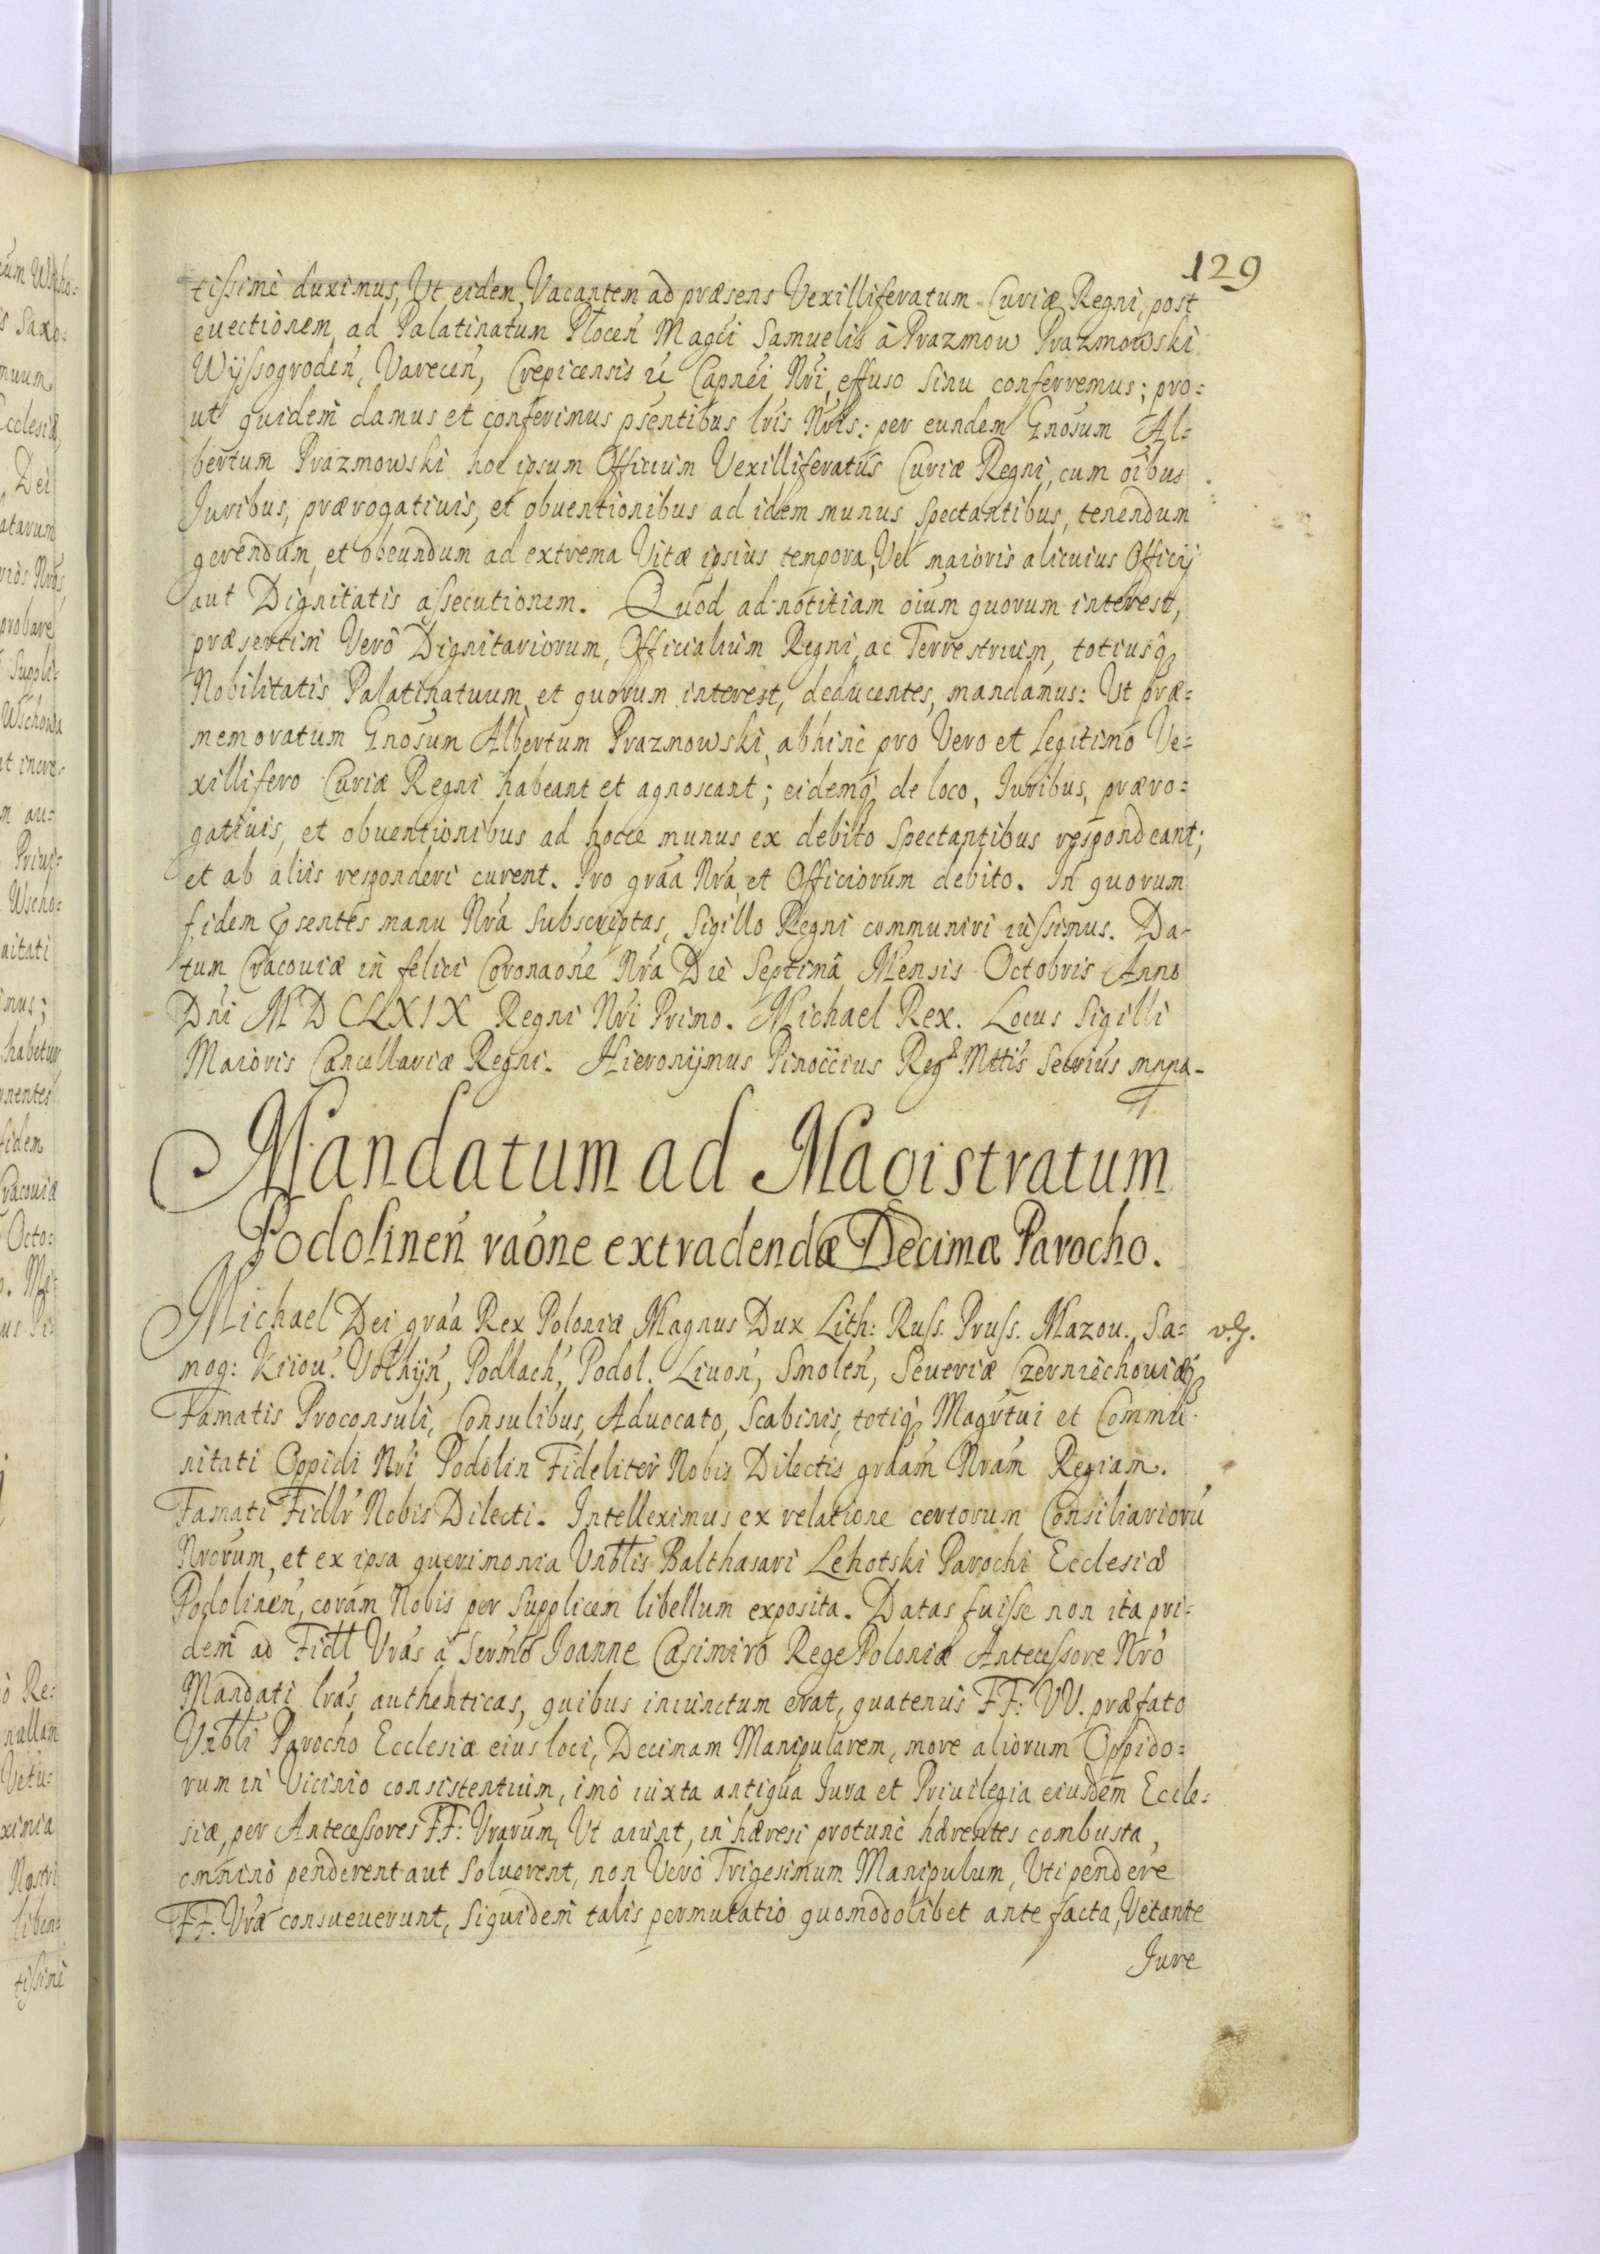 129
tissimè duximus, Ut eidem Vacantem ad præsens Vexilliferatum Curiæ Regni, post
euectionem ad Palatinatum Plocen̄ Magci Samuelis à Prazmow Prazmowski
Wyssogroden̄, Varecen̄, Crepicensis &c Capnei Nri, effuso sinu conferremus; pro=
ut quidem damus et conferimus psentibus lris Nris: per eundem Gnosum Al=
bertum Prazmowski hoc ipsum Officium Vexilliferatus Curiæ Regni, cum oibus
Iuribus, prærogatiuis, et obuentionibus ad idem munus spectantibus, tenendum
gerendum, et obeundum ad extrema Vitæ ipsius tempora, Vel maioris alicuius Officij
aut Dignitatis assecutionem. Quod ad notitiam oium quorum interest,
præsertim Verò Dignitariorum, Officialium Regni, ac Terrestrium, totiusq́
Nobilitatis Palatinatuum et quorum interest, deducentes, mandamus: Ut præ=
memoratum Gnosum Albertum Prazmowski, abhinc pro Vero et legitimo Ve=
xillifero Curiæ Regni habeant et agnoscant; eidemq́ de loco, Iuribus, præro=
gatiuis, et obuentionibus ad hocce munus ex debito spectantibus respondeant;
et ab alijs responderi curent. Pro gráa Nrá, et Officiorum debito. In quorum
fidem psentes manu Nrá subscriptas, Sigillo Regni communiri iussimus. Da-
tum Cracouiæ in felici Coronaone Nrá Die Septimâ Mensis Octobris Anno
Dni MDCLXIX Regni Nri Primo. Michael Rex. Locus Sigilli
Maioris Cancellariæ Regni. Hieronymus Pinoccius Reg Mttis Secrius mnpa-
Mandatum ad Magistratum
Podolinen̄ raóne extradendæ Decimæ Parocho.
Michael Dei gráa Rex Poloniæ Magnus Dux Lith: Russ. Pruss. Mazou. Sa=
mog: Kiiou. Volhyn̄, Podlach, Podol. Liuon̄, Smolen̄, Seueriæ Czerniechouiæq́
Famatis Proconsuli, Consulibus, Aduocato, Scabinis, totiq́ Magrtui et Commu=
nitati Oppidi Nri Podolin Fideliter Nobis Dilectis gráam Nrám Regiam.
Famati Fidlr Nobis Dilecti. Intelleximus ex relatione certorum Consiliariorū
Nrorum, et ex ipsa querimonia Vnbtlis Balthasari Lehotski Parochi Ecclesiæ
Podolinen̄, corám Nobis per supplicem libellum exposita. Datas fuisse non ita pri=
dem ad Fidtt Vrás à Sermo Ioanne Casimiro Rege Poloniæ Antecessore Nro
Mandati lrás authenticas, quibus iniunctum erat, quatenus FF: VV. præfato
Vnbtli Parocho Ecclesiæ eius loci, Decimam Manipularem, more aliorum Oppido=
rum in Vicinio consistentium, imò iuxta antiqua Iura et Priuilegia eiusdem Eccle=
siæ, per Antecessores FF: Vrarum, Ut aiunt, in hæresi protunc hærentes combusta,
omninò penderent aut soluerent, non Verò Trigesimum Manipulum, Uti pendere
FF. Vræ consueuerunt, siquidem talis permutatio quomodolibet ante facta, Vetante
Iure